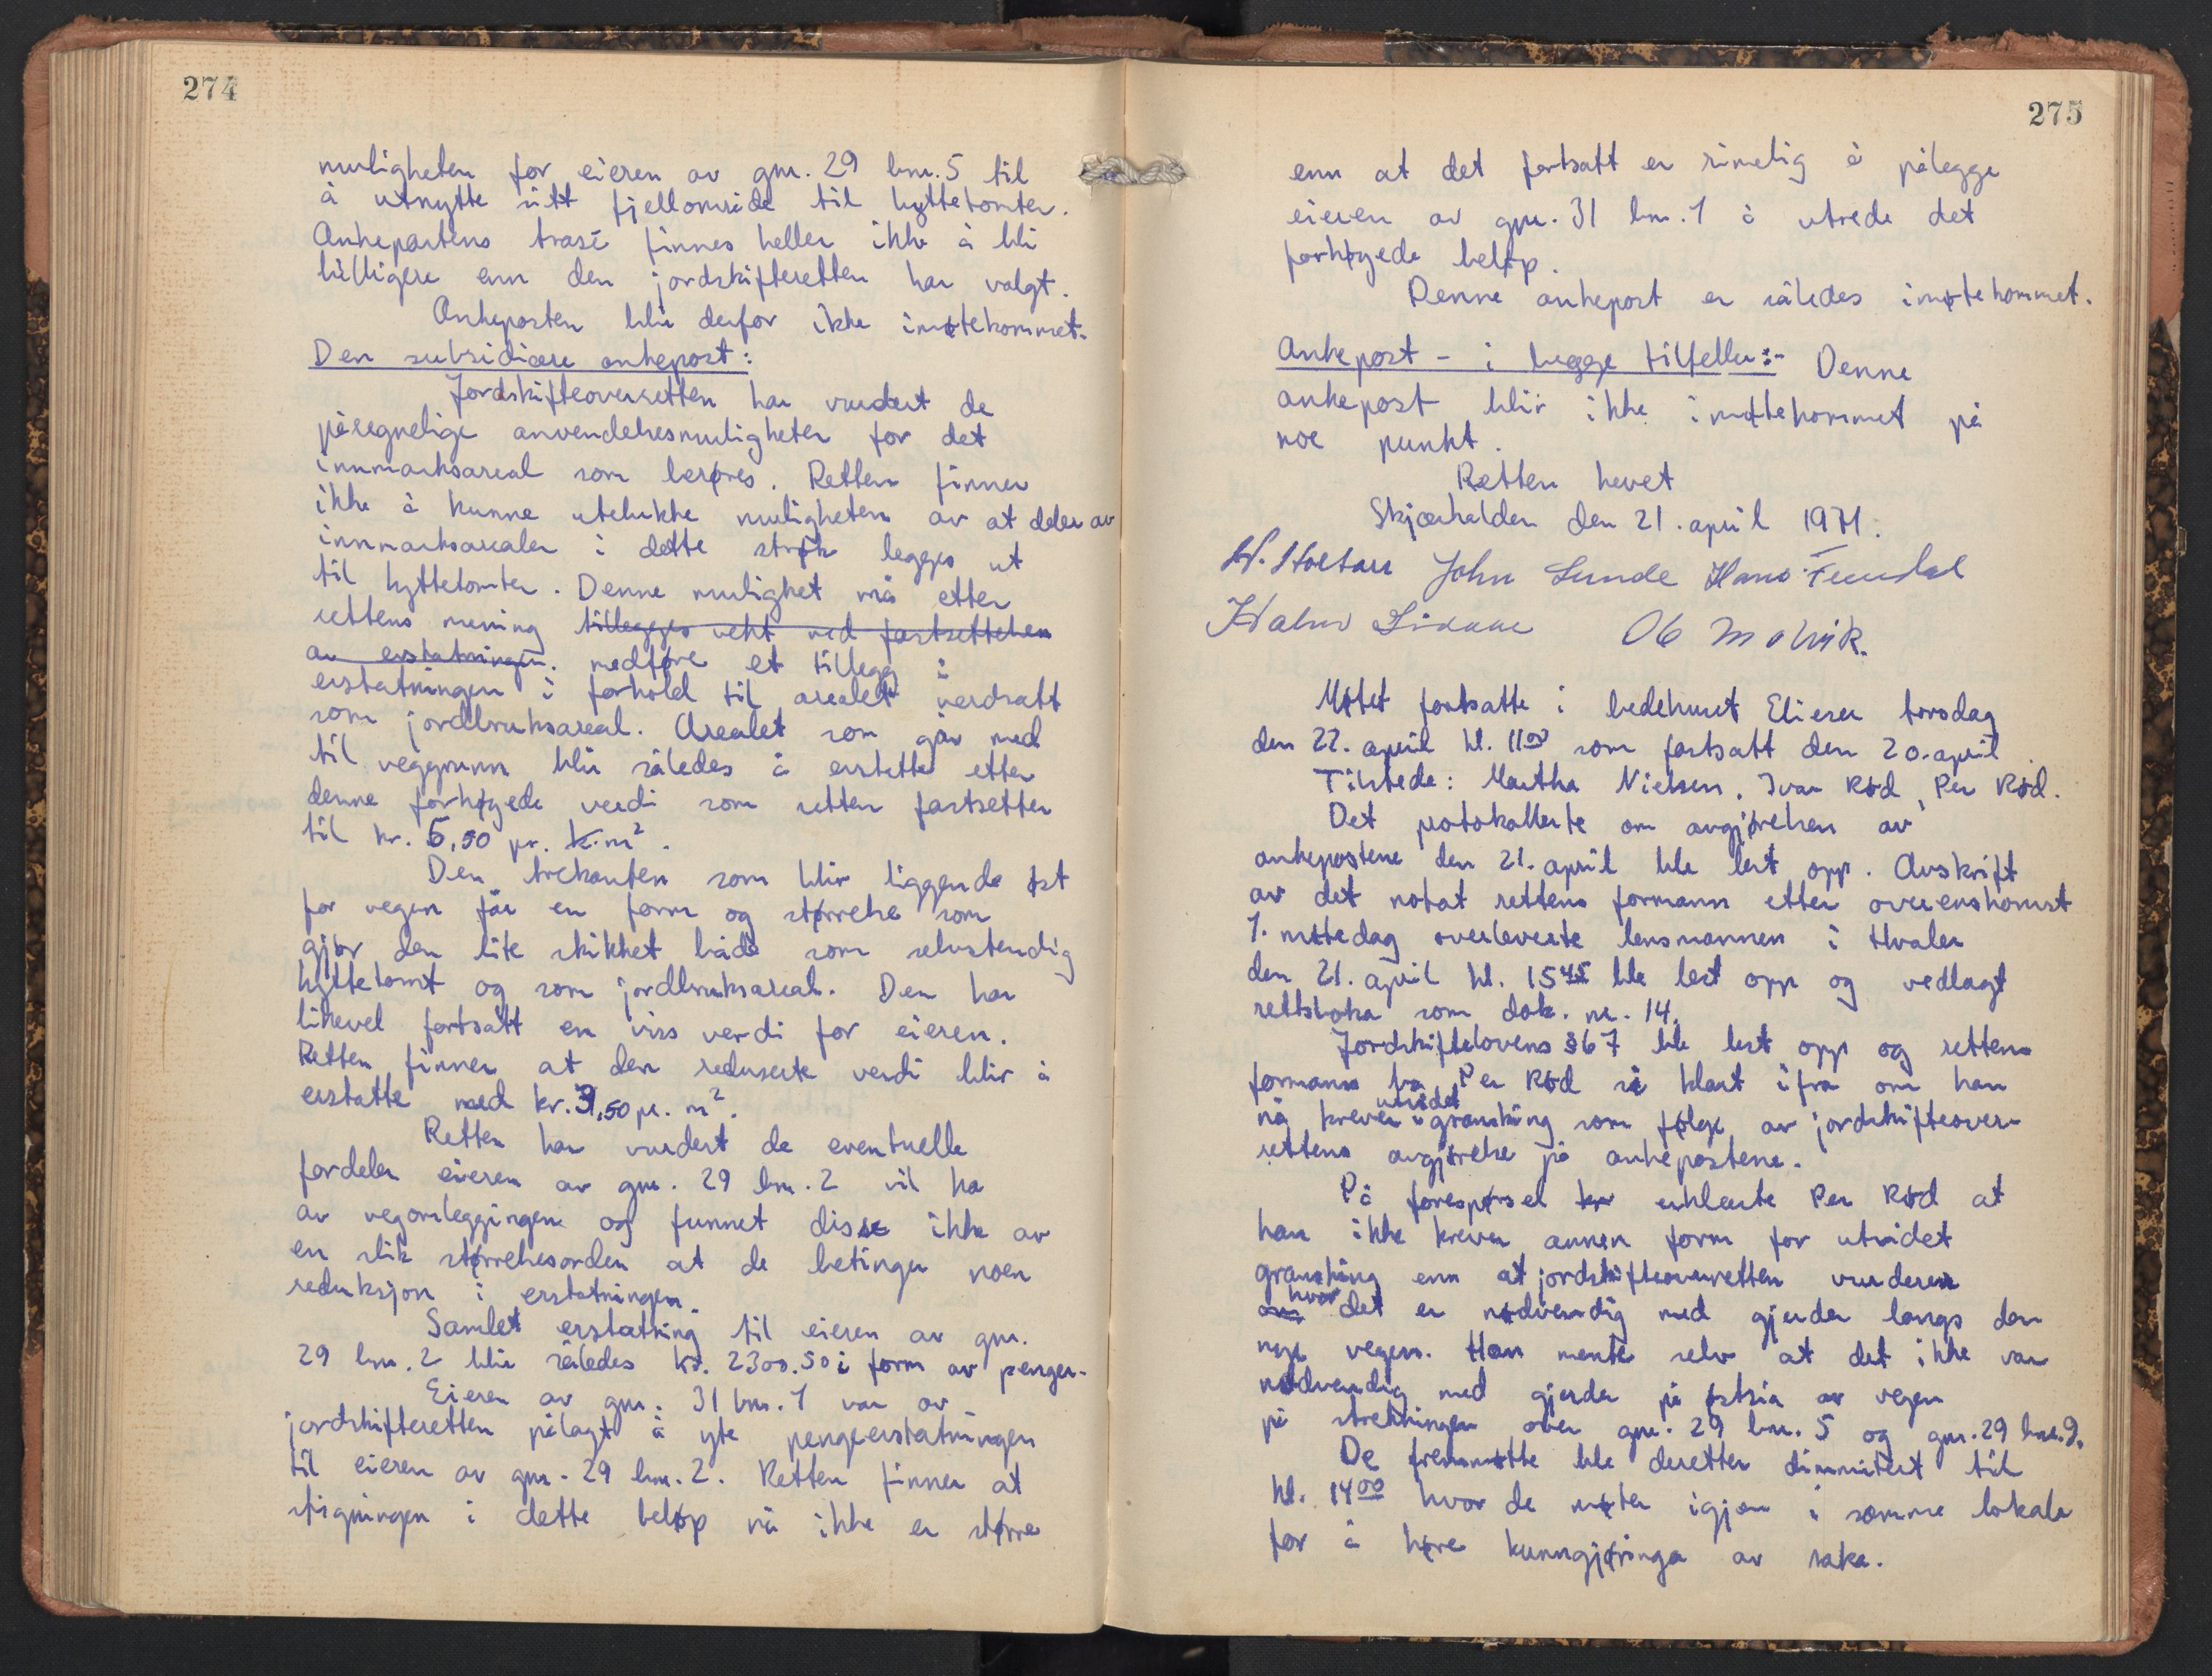 274
muligheten for eieren av gnr. 29 bnr. 5 til
å utnytte sitt fjellområde til hyttetomter.
Ankepartens trasé finnes heller ikke å bli
billigere enn den jordskifteretten har valgt.
Ankeposten blir derfor ikke imøtekommet.
Den subsidiære ankepost:
Jordskifteoverretten har vurdert de
påregnelige anvendelsesmuligheter for det
innmarksareal som berøres. Retten finner
ikke å kunne utelukke muligheten av at deler av
innmarksarealer i dette strøk legges ut
til hyttetomter. Denne mulighet må etter
rettens mening tillegges vekt ved fastsettelsen
av erstatningen. medføre et tillegg i
erstatningen i forhold til arealet verdsatt
som jordbruksareal. Arealet som går med
til veggrunn blir således å erstatte etter
denne forhøyede verdi som retten fastsetter
til kr. 5,50 pr. k.m².
Den trekanten som blir liggende øst
for vegen får en form og størrelse som
gjør den lite skikket både som selvstendig
hyttetomt og som jordbruksareal. Den har
likevel fortsatt en viss verdi for eieren.
Retten finner at den reduserte verdi blir å
erstatte med kr. 3,50 pr. m².
Retten har vurdert de eventuelle
fordeler eieren av gnr. 29 bnr. 2 vil ha
av vegomleggingen og funnet disse ikke av
en slik størrelsesorden at de betinger noen
reduksjon i erstatningen.
Samlet erstatning til eieren av gnr.
29 bnr. 2 blir således kr. 2300.50 i form av penger.
Eieren av gnr. 31 bnr. 1 var av
jordskifteretten pålagt å yte pengeerstatningen
til eieren av gnr. 29 bnr. 2. Retten finner at
stigningen i dette beløp nå ikke er større
275
enn at det fortsatt er rimelig å pålegge
eieren av gnr. 31 bnr. 1 å utrede det
forhøyede beløp.
Denne ankepost er således imøtekommet.
Ankepost - i begge tilfeller:- Denne
ankepost blir ikke imøtekommet på
noe punkt.
Retten hevet
Skjærhalden den 21. april 1971.
John Lunde Hans
Møtet fortsatte i bedehuset Elieser torsdag
den 22. april kl. 11⁰⁰ som fastsatt den 20. april.
Tilstede: Martha Nielsen, Ivar Rød, Per Rød.
Det protokollerte om avgjørelsen av
ankepostene den 21. april ble lest opp. Avskrift
av det notat rettens formann etter overenskomst
1. møtedag overleverte lensmannen i Hvaler
den 21. april kl. 15⁴⁵ ble lest opp og vedlagt
rettsboka som dok. nr. 14.
Jordskiftelovens § 67 ble lest opp og rettens
formann ba Per Rød si klart ifra om han
nå krever utvidet gransking som følge av jordskifteover-
rettens avgjørelse på ankepostene.
På forespørsel erklærte Per Rød at
han ikke krever annen form for utvidet
gransking enn at jordskifteoverretten vurderer
om hvor det er nødvendig med gjerder langs den
nye vegen. Han mente selv at det ikke var
nødvendig med gjerder på østsia av vegen
på strekningen over gnr. 29 bnr. 5 og gnr. 29 bnr. 9.
De fremmøtte ble deretter dimmitert til
kl. 14⁰⁰ hvor de møter igjen i samme lokale
for å høre kunngjøringa av saka.